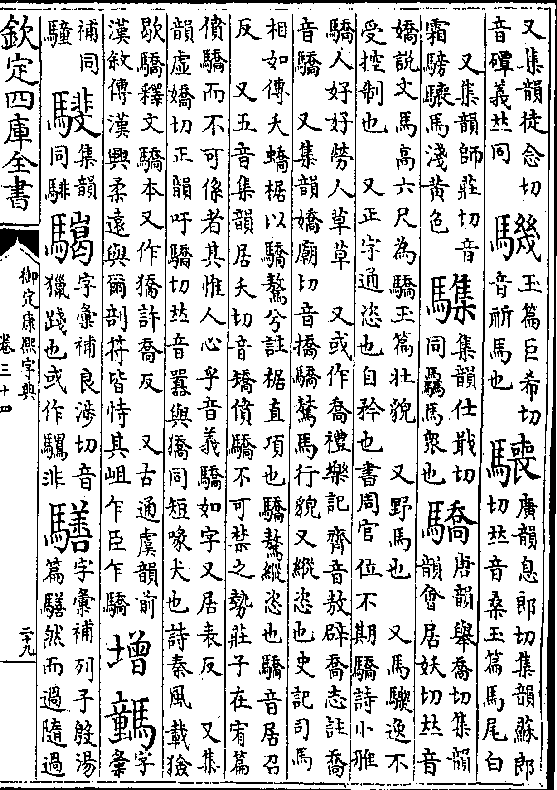 又集韻徒念切
音磹義𠀤同
玉篇巨希切
音祈馬也
廣韻息郎切集韻蘇郎
切𠀤音桑玉篇馬尾白
又集韻師莊切音
霜騯驤馬淺黃色
集韻仕戢切
同驫馬衆也
驕
唐韻舉喬切集韻
韻會居妖切𠀤音
嬌說文馬高六尺為驕玉篇壯貌 又野馬也 又馬驟逸不
受控制也 又正字通恣也自矜也書周官位不期驕詩小雅
驕人好好勞人草草 又或作喬禮樂記齊音敖辟喬志註喬
音驕 又集韻嬌廟切音撟驕驁馬行貌又縱恣也史記司馬
相如傳夭蟜裾以驕驁兮註裾直項也驕驁縱恣也驕音居召
反 又五音集韻居夭切音矯僨驕不可禁之勢莊子在宥篇
僨驕而不可係者其惟人心乎音義驕如字又居表反 又集
韻虛嬌切正韻吁驕切𠀤音囂與獢同短喙犬也詩秦風載獫
歇驕釋文驕本又作獢許喬反 又古通虞韻前
漢敘傳漢興柔遠與爾剖符皆恃其岨乍臣乍驕
增
字
彙
補同
集韻
同騑
字彙補良涉切音
獵踐也或作 非
字彙補列子殷湯
篇 然而過隨過
欽定四庫全書
御定康熙字典
卷三十四
二十九